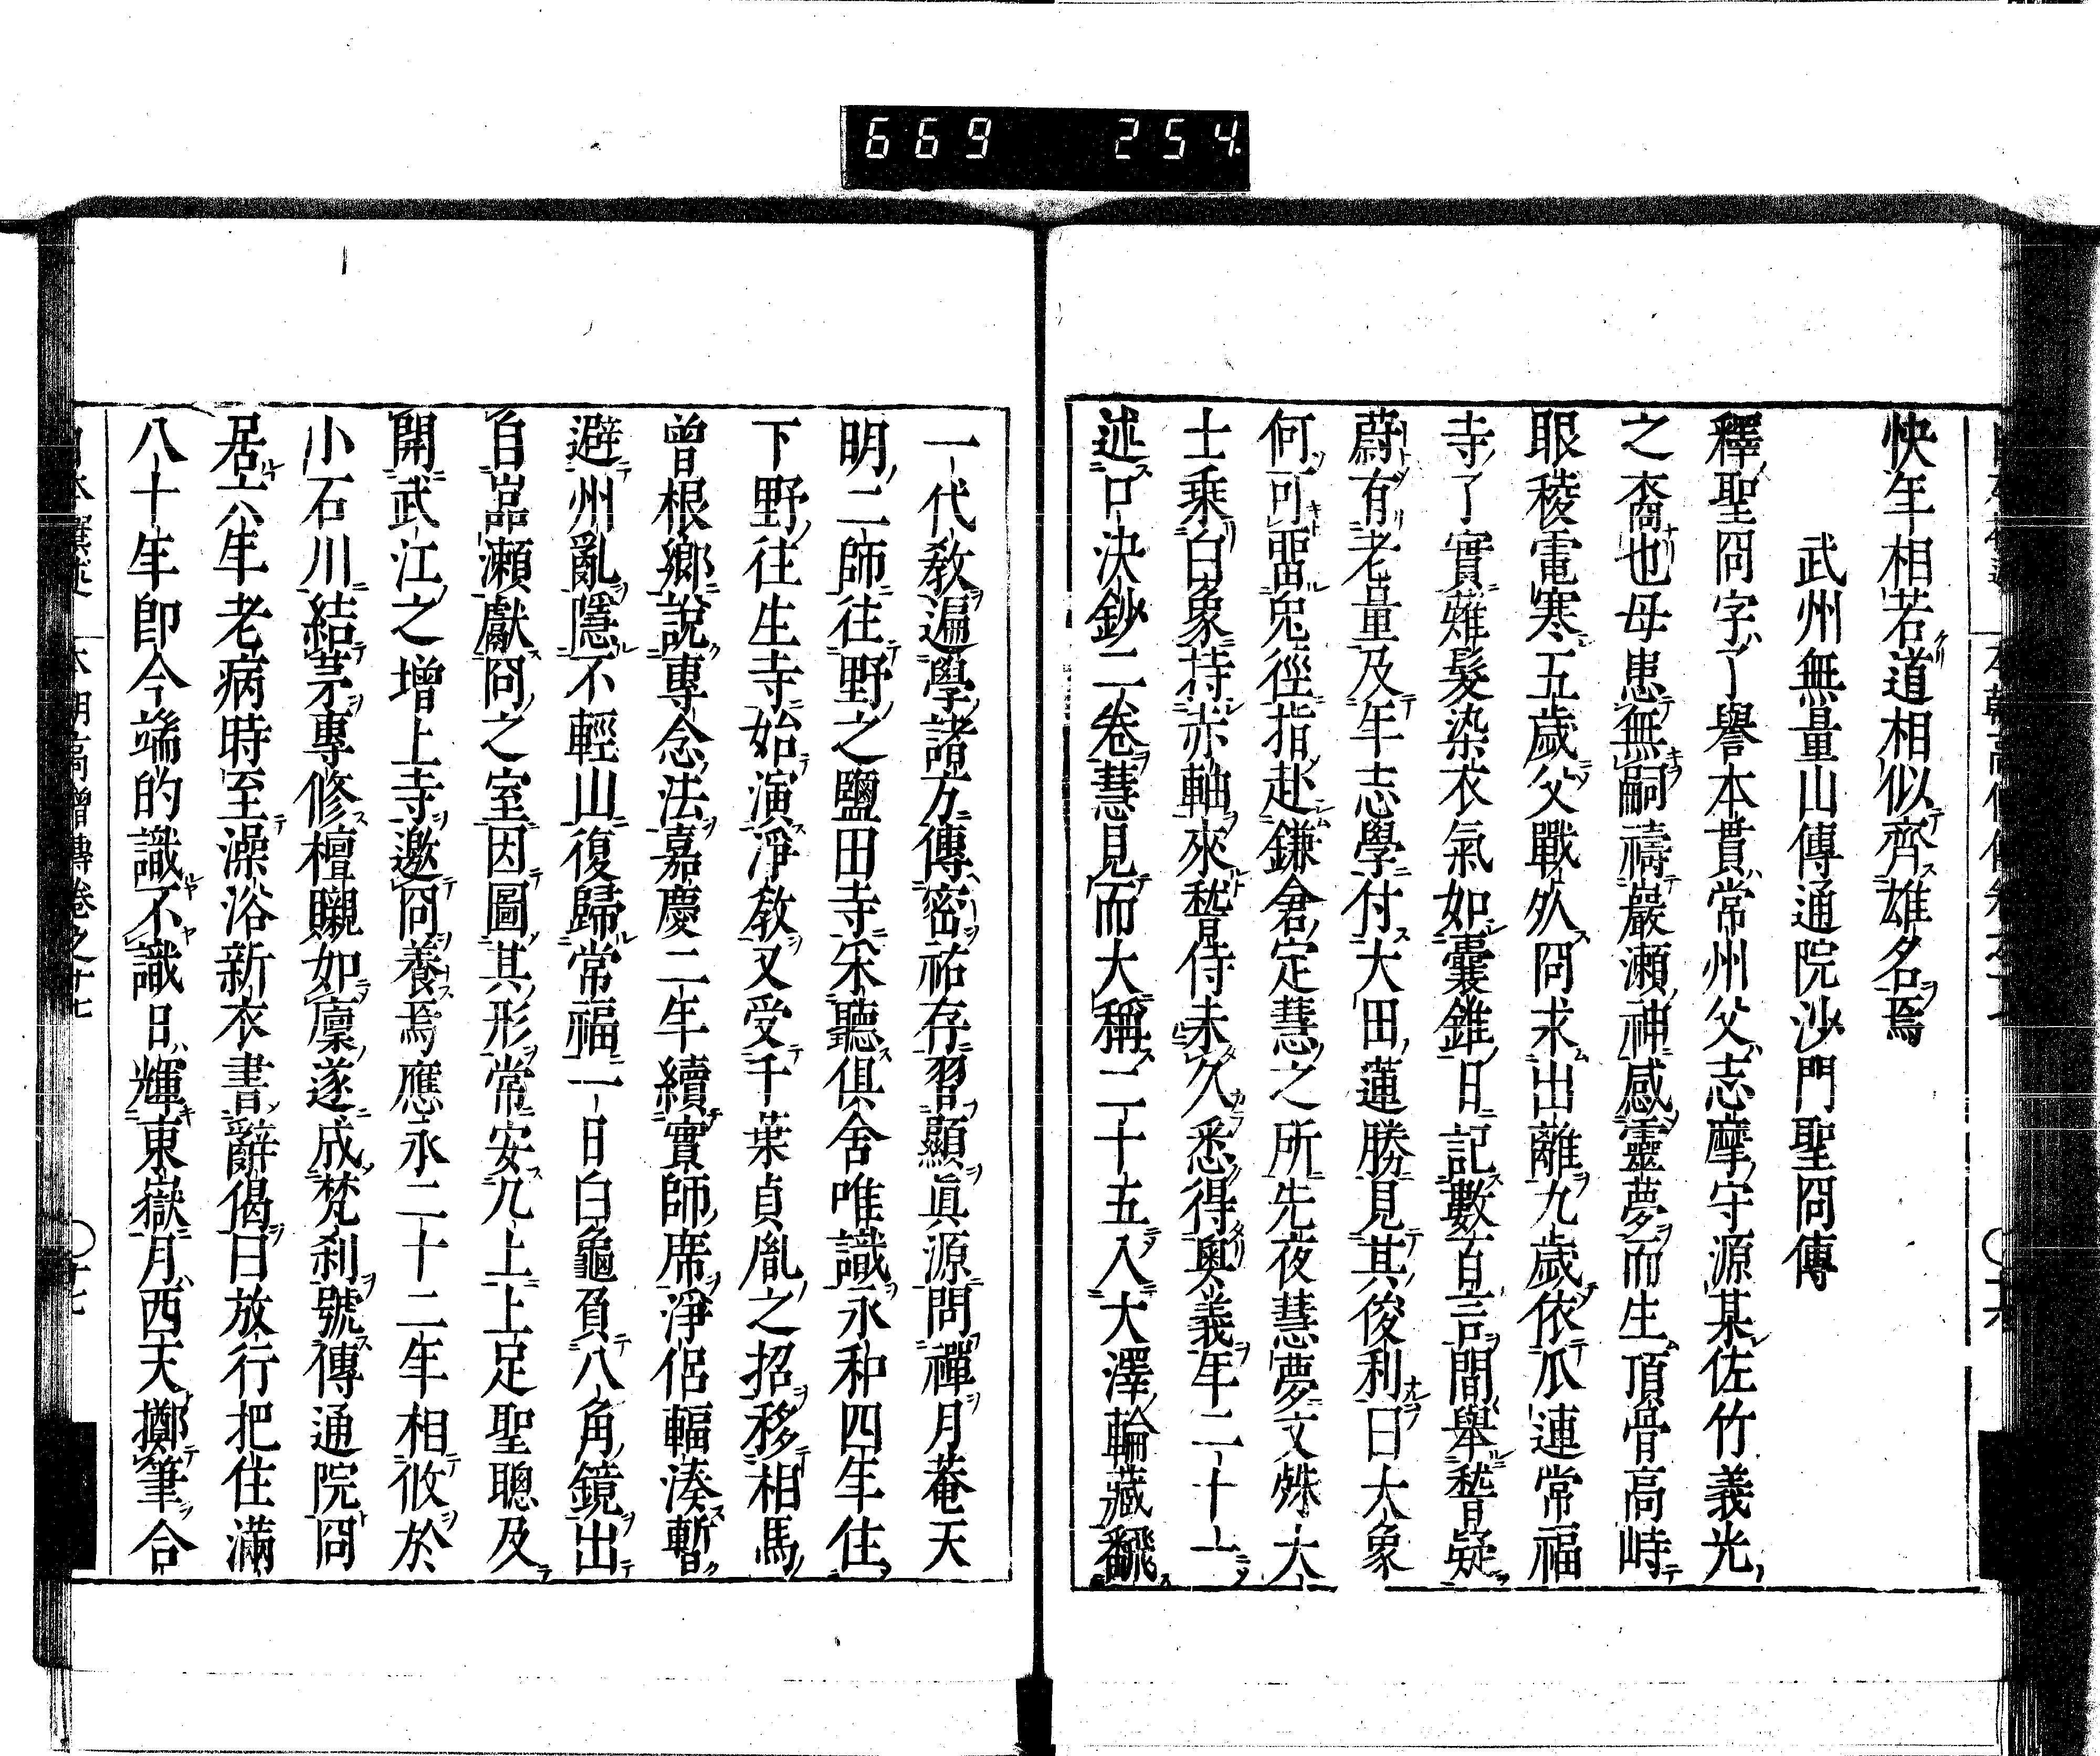 669 254
快年相若道相似齊雄名焉
武州無量山傳通院沙門聖冏傳
釋聖冏字了譽本貫常州父志摩守源某佐竹義光
之裔也母患無嗣禱嚴瀨神感靈夢而生頂骨高峙
眼稜電寒五歲父戰歿冏求出離九歲依瓜連常福
寺了實薙髮染衣氣如囊錐日記數百言間舉嵆疑
蔚有老量及年志學付大田蓮勝見其俊利曰大象
何可畱兔徑指赴鎌倉定慧之所先夜慧夢文殊大
士乘白象持赤軸來嵆侍未久悉得奧義年二十一
述口決鈔二卷慧見而大稱二十五入大澤輪藏飜
一代教遍學諸方傳密祐存習顯眞源問禪月菴天
明二師往野之鹽田寺宋聽俱舍唯識永和四年住
下野往生寺始演淨教又受千葉貞胤之招移相馬
曾根鄉說專念法嘉慶二年續實師席淨侶輻湊暫
避州亂隱不輕山復歸常福一日白龜負八角鏡出
自嵓瀨獻冏之室因圖其形常安几上上足聖聰及
開武江之增上寺邀冏養焉應永二十二年相攸於
小石川結茅專修檀嚫如廩遂成梵刹號傳通院冏
居六年老病時至澡浴新衣書辭偈曰放行把住滿
八十年卽今端的識不識日輝東嶽月西天擲筆合